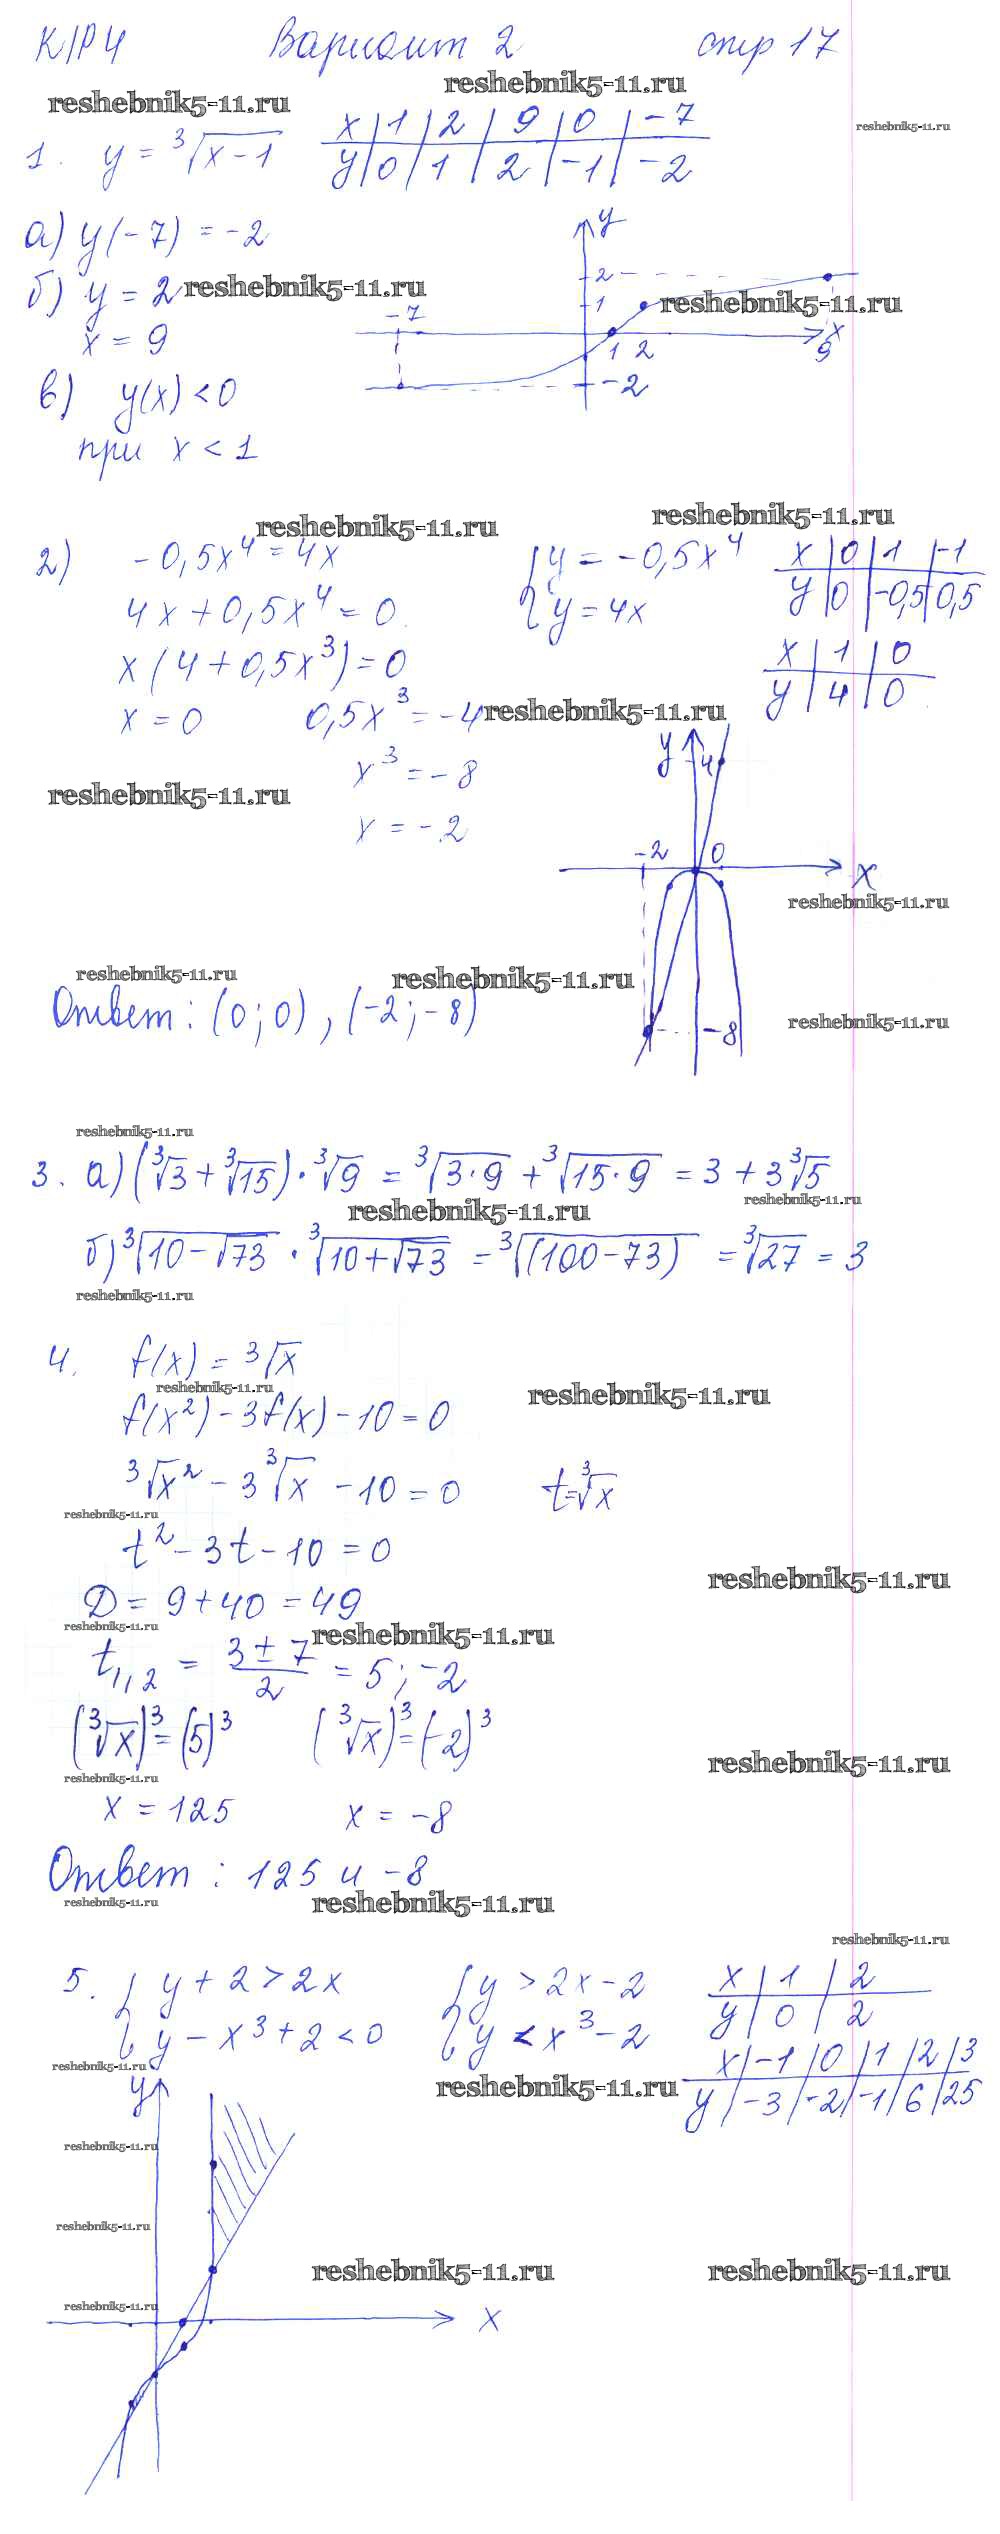 К/Р 4 Вариант 2 стр 17
reshebnik5-11.ru
reshebnik5-11.ru
reshebnik5-11.ru
1. y = ³√(x-1) x | 1 | 2 | 9 | 0 | -7
y | 0 | 1 | 2 | -1 | -2
а) y(-7) = -2
б) y = 2 reshebnik5-11.ru
x = 9
y
2
1
reshebnik5-11.ru
-7
1 2 9 x
-2
в) y(x) < 0
при x < 1
reshebnik5-11.ru
reshebnik5-11.ru
2) -0,5x⁴ = 4x { y = -0,5x⁴ x | 0 | 1 | -1
4x + 0,5x⁴ = 0 { y = 4x y | 0 | -0,5 | 0,5
x(4 + 0,5x³) = 0 x | 1 | 0
x = 0 0,5x³ = -4 reshebnik5-11.ru y | 4 | 0
x³ = -8
reshebnik5-11.ru
x = -2
y 4
-2 0 x
reshebnik5-11.ru
reshebnik5-11.ru
reshebnik5-11.ru
Ответ: (0; 0), (-2; -8)
-8
reshebnik5-11.ru
reshebnik5-11.ru
3. а) (³√3 + ³√15) · ³√9 = ³√(3·9) + ³√(15·9) = 3 + 3³√5
reshebnik5-11.ru
reshebnik5-11.ru
б) ³√(10-√73) · ³√(10+√73) = ³√((100-73)) = ³√27 = 3
reshebnik5-11.ru
4. f(x) = ³√x
reshebnik5-11.ru
reshebnik5-11.ru
f(x²) - 3f(x) - 10 = 0
³√x² - 3³√x - 10 = 0 t = ³√x
reshebnik5-11.ru
t² - 3t - 10 = 0
reshebnik5-11.ru
D = 9 + 40 = 49
reshebnik5-11.ru
reshebnik5-11.ru
t₁,₂ = (3 ± 7)/2 = 5; -2
(³√x)³ = (5)³ (³√x)³ = (-2)³
reshebnik5-11.ru
reshebnik5-11.ru
x = 125 x = -8
Ответ: 125 и -8
reshebnik5-11.ru
reshebnik5-11.ru
reshebnik5-11.ru
5. { y + 2 > 2x { y > 2x - 2 x | 1 | 2
{ y - x³ + 2 < 0 { y < x³ - 2 y | 0 | 2
reshebnik5-11.ru
reshebnik5-11.ru
x | -1 | 0 | 1 | 2 | 3
y | -3 | -2 | -1 | 6 | 25
y
reshebnik5-11.ru
reshebnik5-11.ru
reshebnik5-11.ru
reshebnik5-11.ru
reshebnik5-11.ru
x